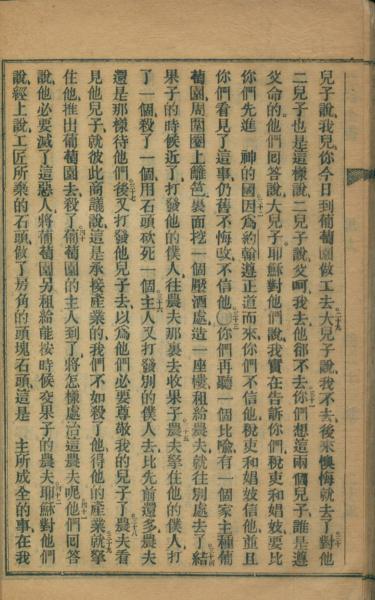 兒子說、我兒你今日到葡萄園做工去、大兒子說、我不去、後來懊悔就去了、對他
二兒子也是這樣說、二兒子說、父呵、我去、他卻不去、你們想這兩個兒子誰是遵
父命的、他們回答說、大兒子、耶穌對他們說、我實在告訴你們、稅吏和娼妓、要比
你們先進　神的國、因爲約翰遵正道而來、你們不信他、稅吏和娼妓信他、並且
你們看見了這事、仍舊不悔改不信他、你們再聽一個比喻、有一個家主種葡
萄園、周圍圈上籬笆、裏面挖一個壓酒處、造一座樓、租給農夫、就往別處去了、結
果子的時候近了、打發他的僕人往農夫那裏去收果子、農夫拏住他的僕人、打
了一個、殺了一個、用石頭砍死一個、主人又打發別的僕人去、比先前還多、農夫
還是那樣待他們、後又打發他兒子去、以爲他們必要尊敬我的兒子了、農夫看
見他兒子、就彼此商議說、這是承接產業的、我們不如殺了他、得他的產業、就拏
住他、推出葡萄園去殺了、葡萄園的主人到了、將怎樣處治這農夫呢、他們回答
說、他必要滅了這惡人、將葡萄園另租給能按時候交果子的農夫、耶穌對他們
說、經上說、工匠所棄的石頭、做了房角的頭塊石頭、這是　主所成全的事、在我